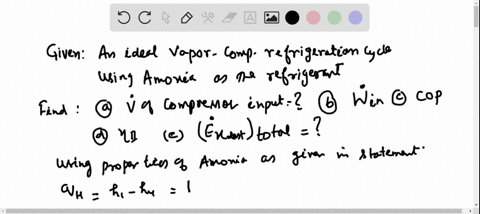 Given: An ideal Vapor-Comp. refrigeration cycle
using Amonia as the refrigerant
Find: (a) V̇ of Compressor input=? (b) Ẇin (c) COP
(d) ηII (e) (Ėxdest)total = ?
using properties of Amonia as given in statement.
qH = h1 - h4 = 1